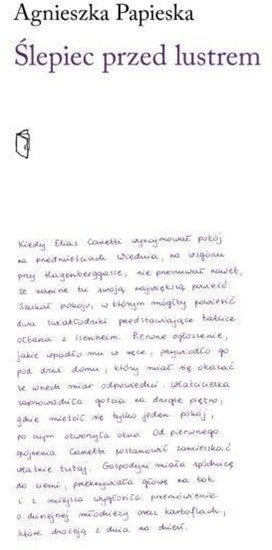 Agnieszka Papieska
Ślepiec przed lustrem
Kiedy Elias Canetti wynajmował pokój
na przedmieściach Wiednia, na wzgórzu
przy Hagenberggasse, nie przeczuwał nawet,
że napisze tu swoją największą powieść.
Szukał pokoju, w którym mógłby powiesić
dwa światłodruki przedstawiające tablice
ołtarza z Isenheim. Pierwsze ogłoszenie,
jakie wpadło mu w ręce, przywiodło go
pod drzwi domu, który miał się okazać
ze wszech miar odpowiedni. Właścicielka
zaprowadziła gościa na drugie piętro,
gdzie mieścił się tylko jeden pokój,
po czym otworzyła okna. Od pierwszego
spojrzenia Canetti postanowił zamieszkać
właśnie tutaj. Gospodyni miała spódnicę
do ziemi, przekrzywiała głowę na bok
i z miejsca wygłosiła przemówienie
o dzisiejszej młodzieży oraz kartoflach,
które drożeją z dnia na dzień.